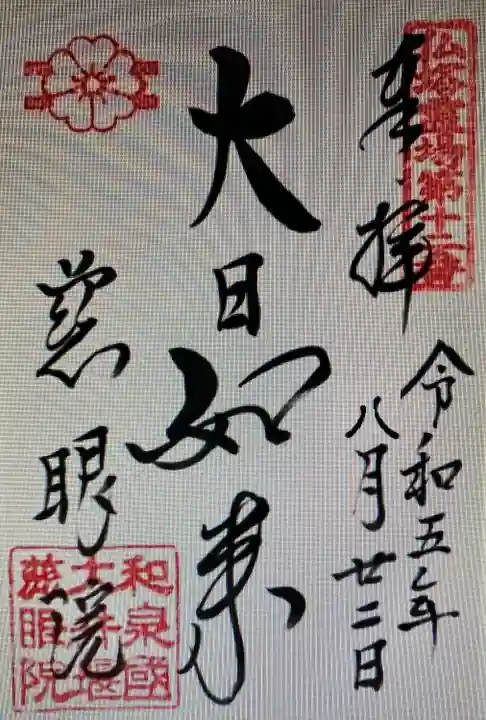 仏塔霊場第十二番
奉拝
令和五年
八月廿二日
大日如来
慈眼院
和泉國
大井堰
慈眼院